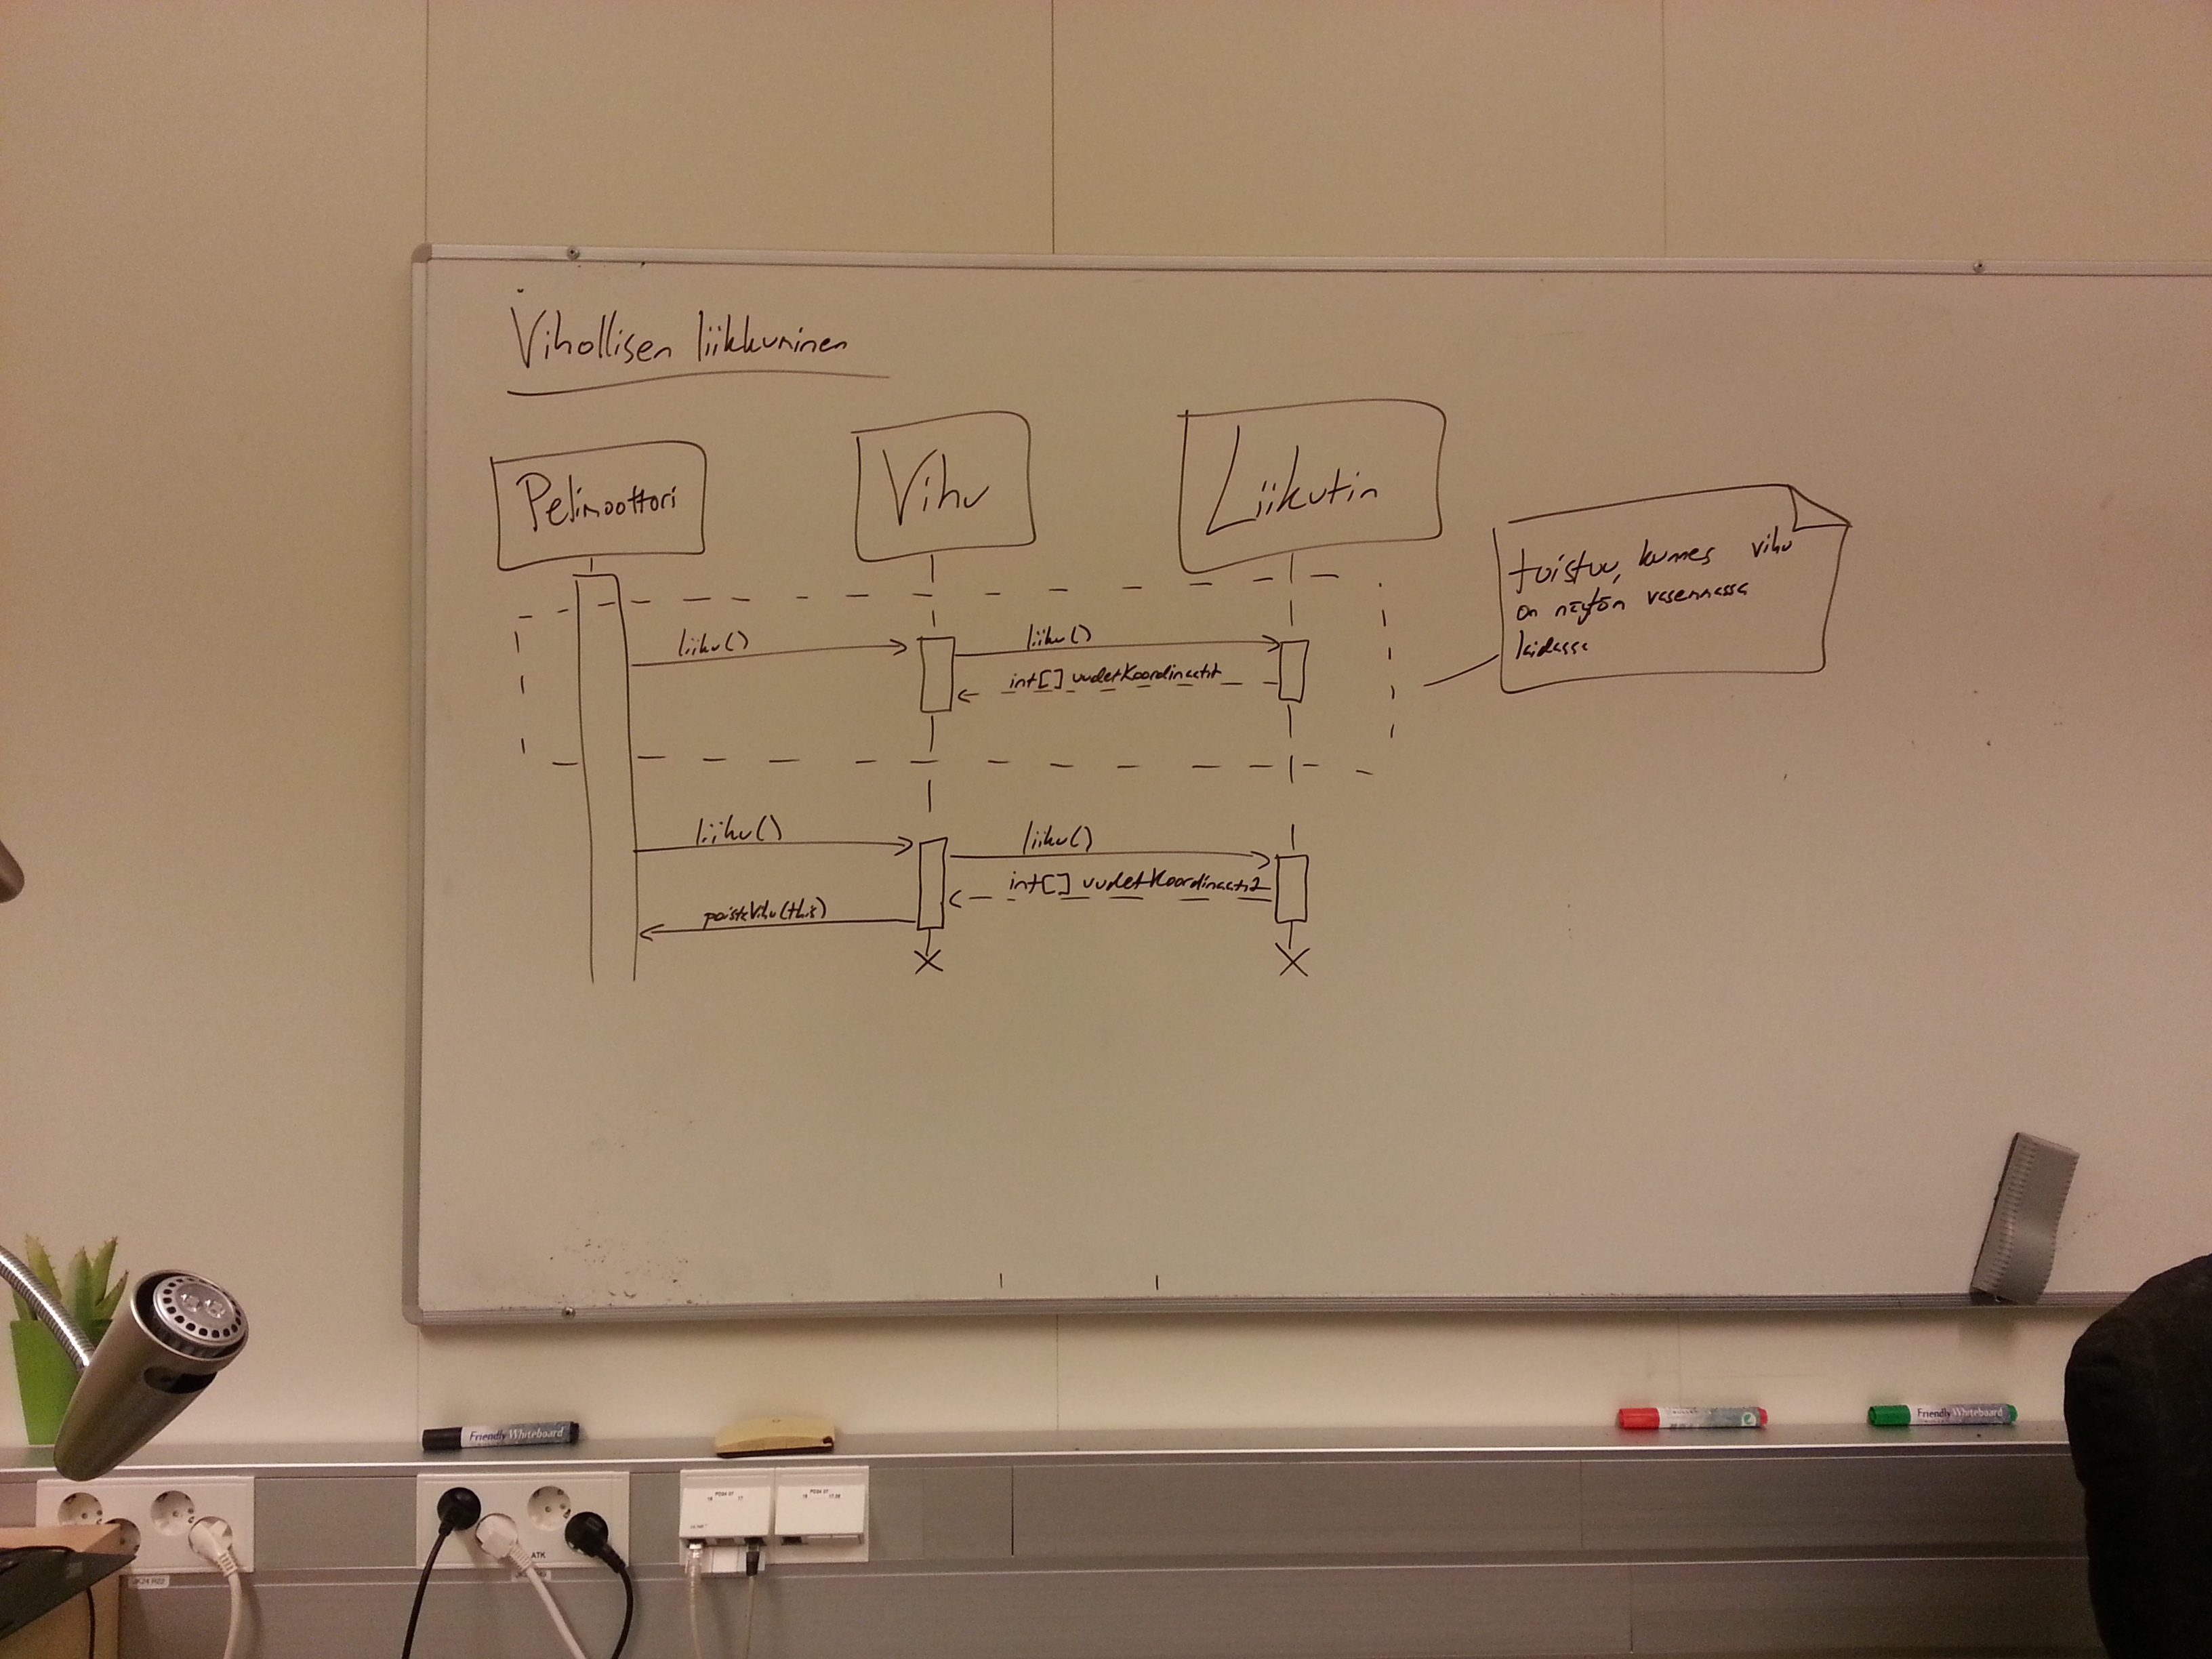 Vihollisen liikkuminen
Pelimoottori
Vihu
Liikutin
toistuu, kunnes vihu
on näytön vasemmassa
laidassa
liiku()
liiku()
int[] uudetKoordinaatit
liiku()
liiku()
int[] uudetKoordinaatit
poistaVihu(this)
Friendly Whiteboard
Friendly Whiteboard
ATK